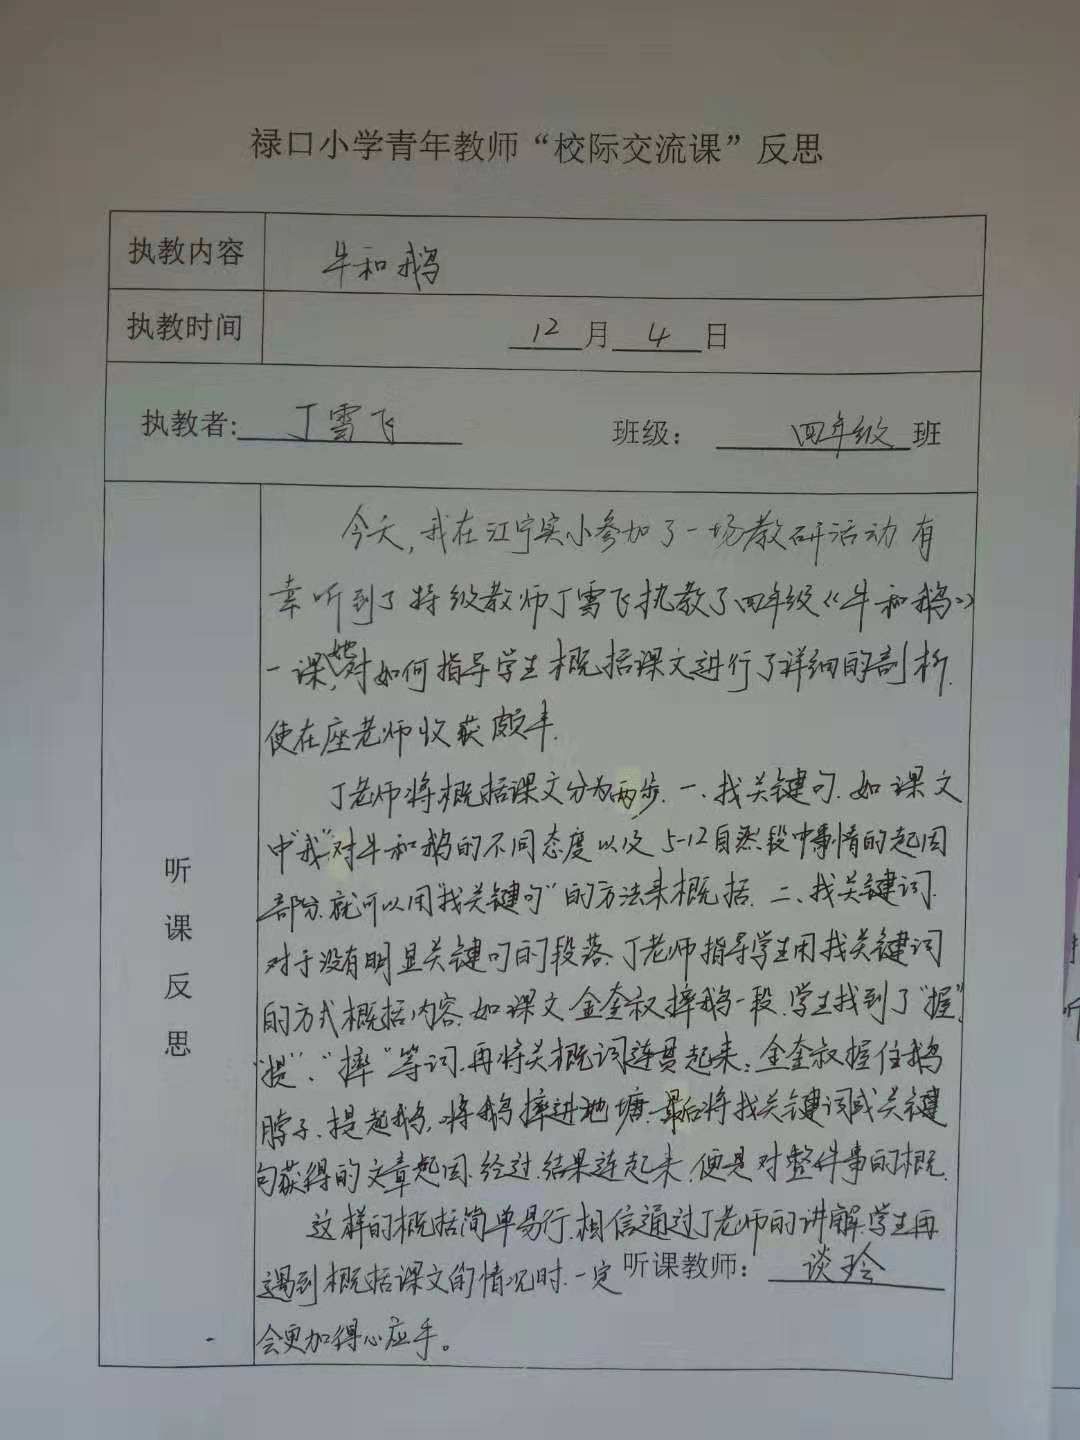 禄口小学青年教师“校际交流课”反思
执教内容 牛和鹅
执教时间 12月4日
执教者: 丁雪飞 班级: 四年级班
听课反思
今天,我在江宁实小参加了一场教研活动有
幸听到了特级教师丁雪飞执教了四年级《牛和鹅》
一课,她对如何指导学生概括课文进行了详细的剖析.
使在座老师收获颇丰.
丁老师将概括课文分为两步.一、找关键句.如课文
中“我”对牛和鹅的不同态度以及5-12自然段中事情的起因
部分.就可以用“找关键句”的方法来概括.二、找关键词.
对于没有明显关键句的段落.丁老师指导学生用找关键词
的方式概括内容.如课文金奎叔摔鹅一段.学生找到了“握”,
“提”、“摔”等词.再将关概词连贯起来:金奎叔握住鹅
脖子.提起鹅.将鹅摔进池塘.最后将找关键词或关键
句获得的文章起因.经过.结果连起来.便是对整件事的概.
这样的概括简单易行.相信通过丁老师的讲解.学生再
遇到概括课文的情况时.一定
会更加得心应手。
听课教师: 谈玲